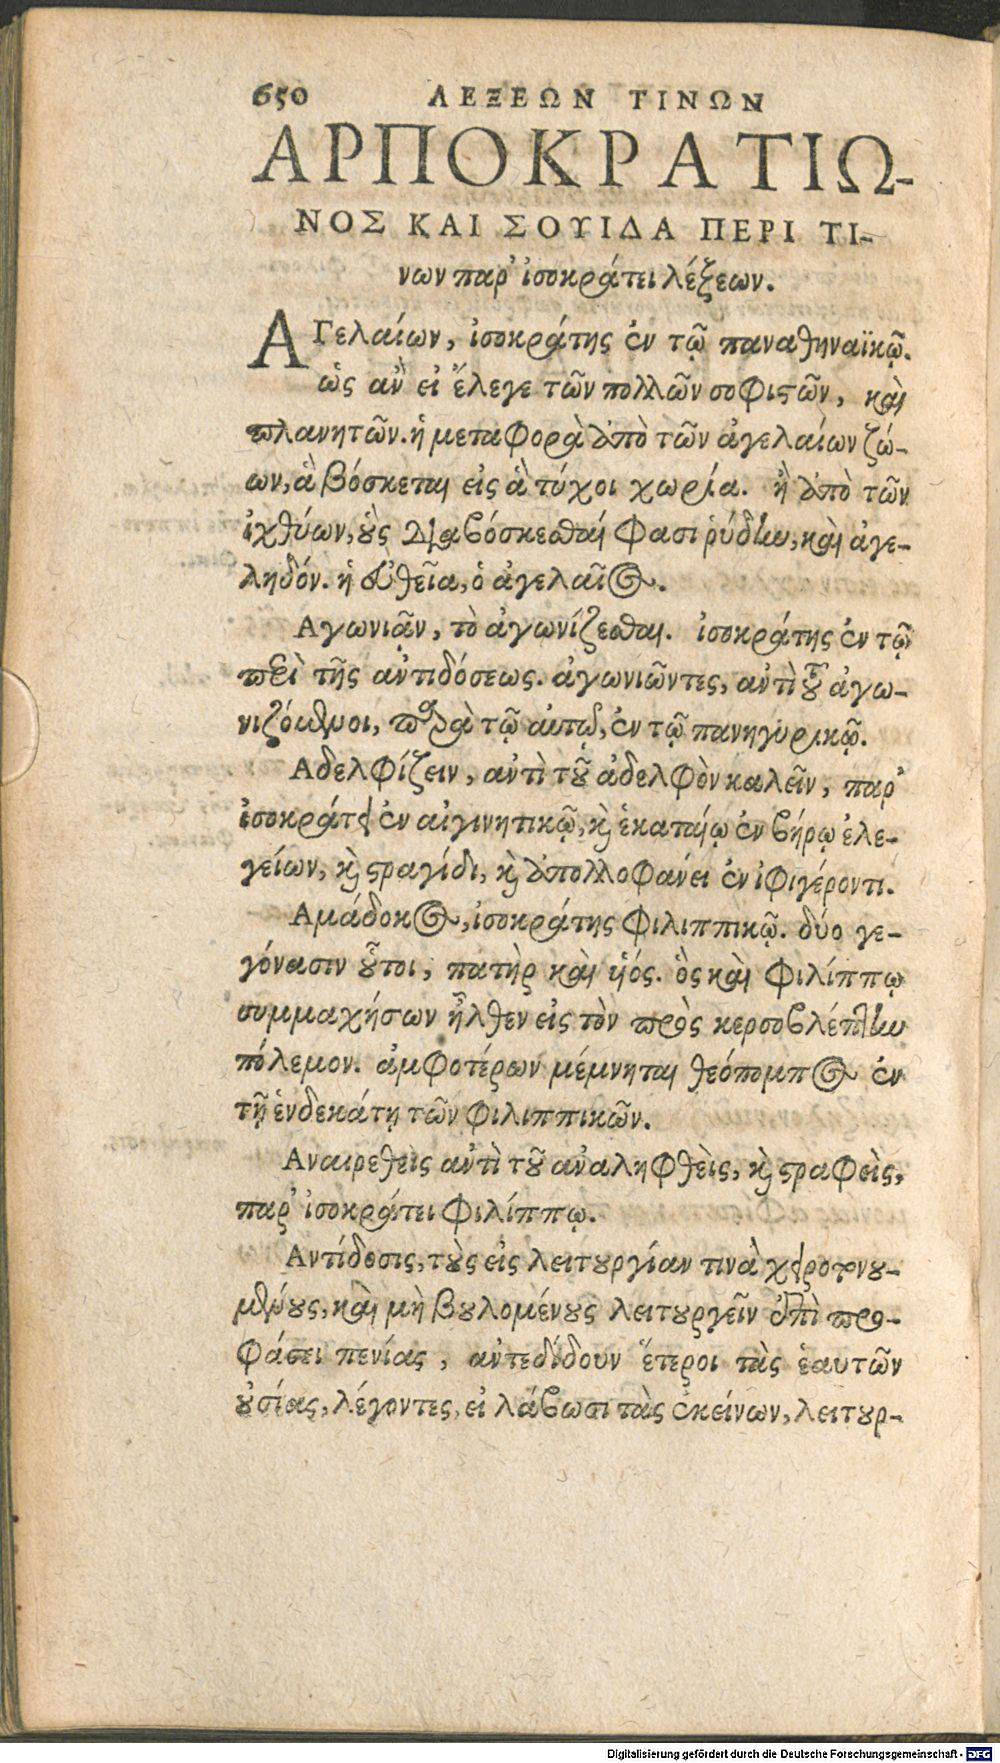 650 ΛΕΞΕΩΝ ΤΙΝΩΝ
ΑΡΠΟΚΡΑΤΙΩ-
ΝΟΣ ΚΑΙ ΣΟΥΙΔΑ ΠΕΡΙ ΤΙ-
νων παρ' ἰσοκράτει λέξεων.
ΑΓελαίων, ἰσοκράτης ἐν τῷ παναθηναϊκῷ.
ὡς ἂν εἰ ἔλεγε τῶν πολλῶν σοφιστῶν, καὶ
πλανητῶν. ἡ μεταφορὰ ἀπὸ τῶν ἀγελαίων ζώ-
ων, ἃ βόσκεται εἰς ἃ τύχοι χωρία. ἢ ἀπὸ τῶν
ἰχθύων, οὓς διαβόσκεσθαί φασι ῥύδην, καὶ ἀγε-
ληδόν. ἡ εὐθεῖα, ὁ ἀγελαῖος.
Αγωνιᾷν, τὸ ἀγωνίζεσθαι. ἰσοκράτης ἐν τῷ
περὶ τῆς ἀντιδόσεως. ἀγωνιῶντες, ἀντὶ τοῦ ἀγω-
νιζόμενοι, παρὰ τῷ αὐτῷ, ἐν τῷ πανηγυρικῷ.
Αδελφίζειν, ἀντὶ τοῦ ἀδελφὸν καλεῖν, παρ'
ἰσοκράτει ἐν αἰγινητικῷ, καὶ ἑκαταίῳ ἐν βήρῳ ἐλε-
γείων, καὶ στραγίδι, καὶ ἀπολλοφάνει ἐν ἰφιγέροντι.
Αμάδοκος, ἰσοκράτης Φιλιππικῷ. δύο γε-
γόνασιν οὗτοι, πατὴρ καὶ υἱός. ὃς καὶ Φιλίππῳ
συμμαχήσων ἦλθεν εἰς τὸν πρὸς κερσοβλέπτην
πόλεμον. ἀμφοτέρων μέμνηται θεόπομπος ἐν
τῇ ἑνδεκάτῃ τῶν Φιλιππικῶν.
Αναιρεθεὶς ἀντὶ τοῦ ἀναληφθεὶς, καὶ στραφεὶς,
παρ' ἰσοκράτει Φιλίππῳ.
Αντίδοσις, τοὺς εἰς λειτουργίαν τινὰ χειροτονου-
μένους, καὶ μὴ βουλομένους λειτουργεῖν ἐπὶ προ-
φάσει πενίας, ἀντεδίδουν ἕτεροι τὰς ἑαυτῶν
οὐσίας, λέγοντες, εἰ λάβωσι τὰς ἐκείνων, λειτουρ-
Digitalisierung gefördert durch die Deutsche Forschungsgemeinschaft - DFG